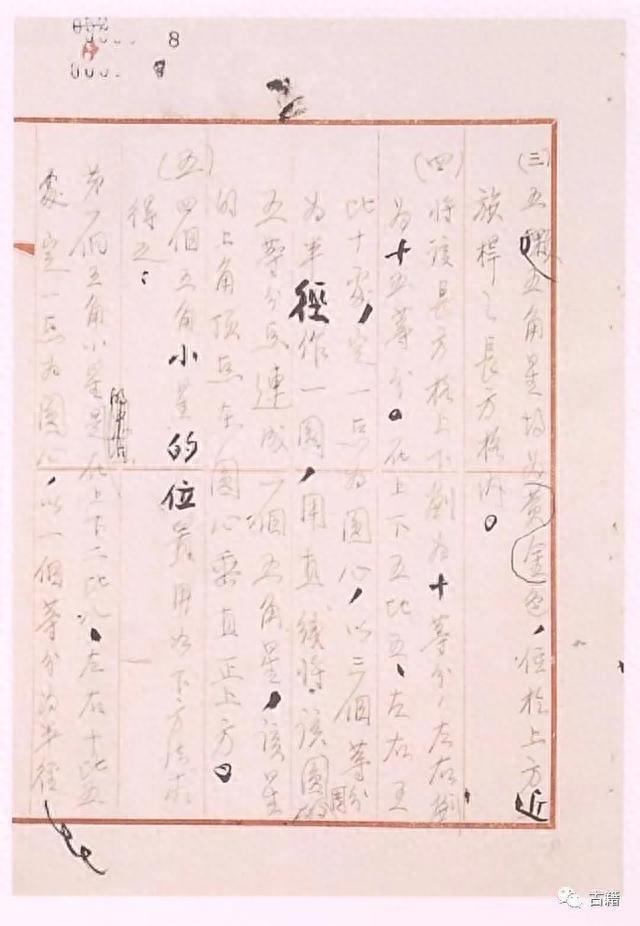 8
(三)五顆五角星均为黃金色,位於上方近
旗桿之長方格內。
(四)將該長方格上下劃为十等分,左右劃
为十五等分。在上下五比五、左右五
比十處,定一点为圓心,以三個等分
为半徑作一圓,用直綫將該圓周的
五等分点連成一個五角星,該星
的上角頂点在圓心垂直正上方。
(五)四個五角小星的位置用如下方法求
得之:
第一個五角小星是在上下二比八、左右十比五
處定一点为圓心,以一個等分为半徑
古籍